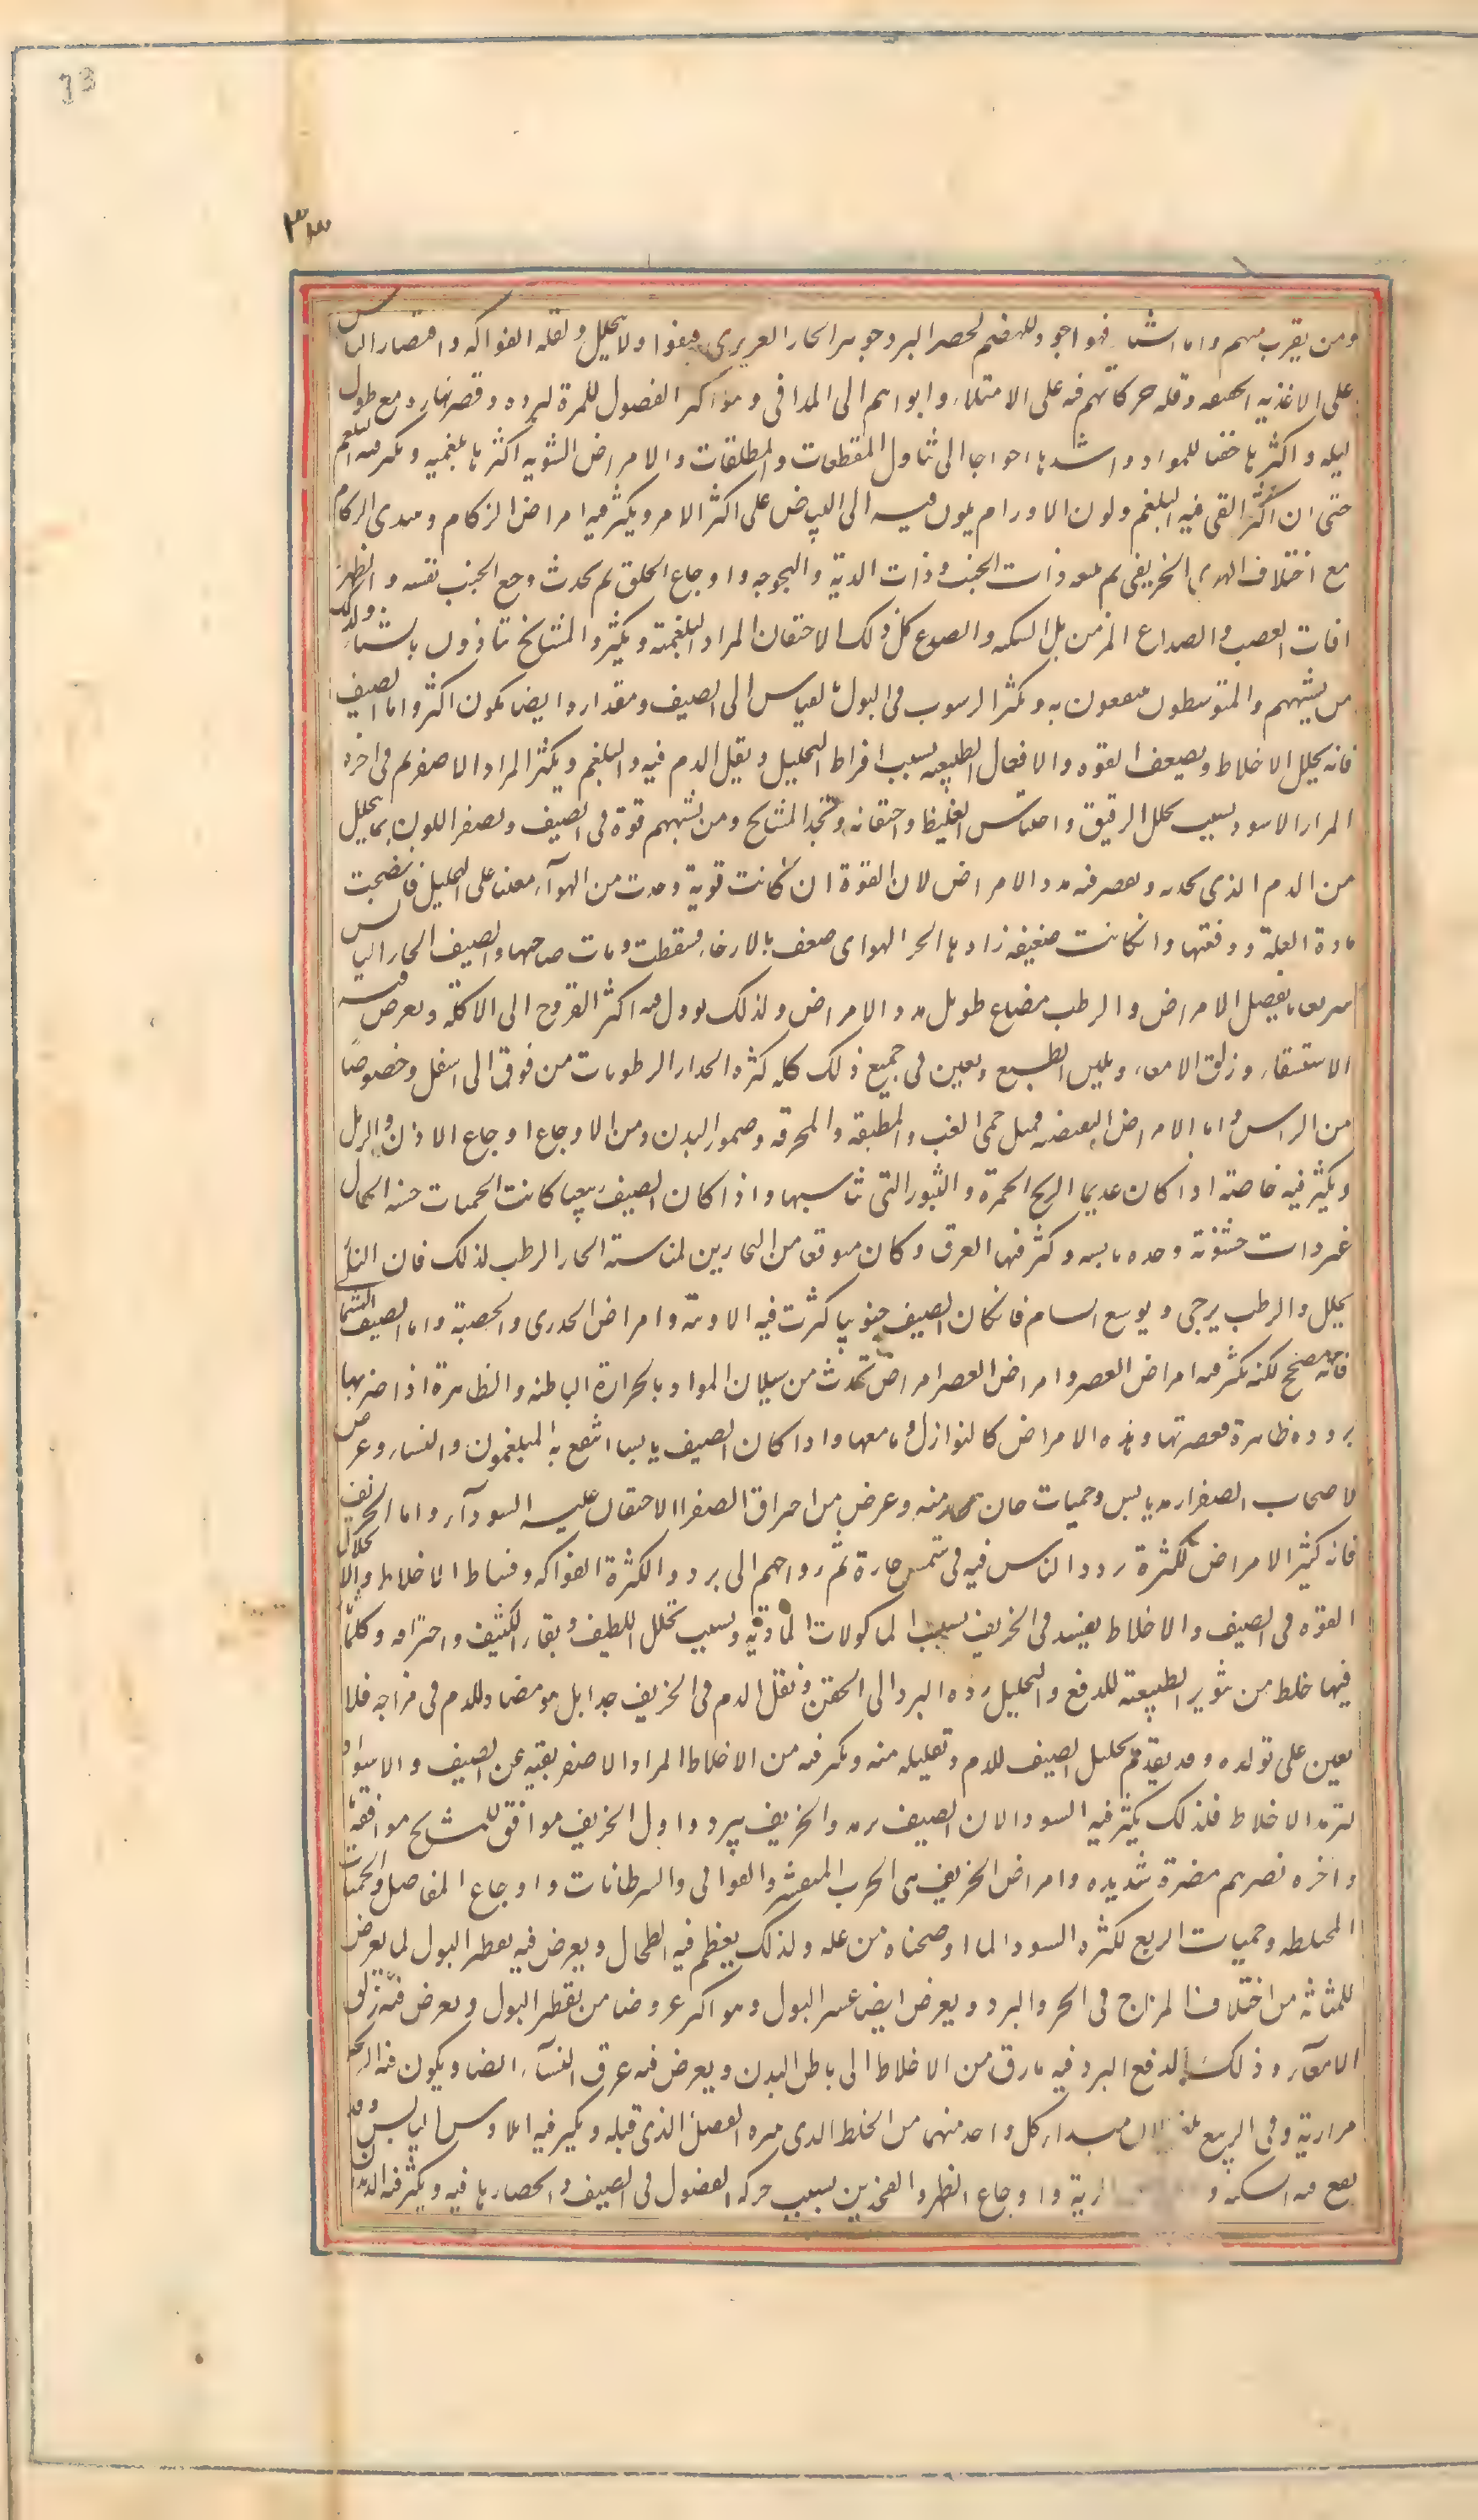 73
٣٣
ومن يقرب منهم واما الشتا فهو اجود للهضم لحصر البرد جوهر الحار الغريزى فيقوا ولا يتحلل ولقلة الفواكه واقتصار الناس
على الاغذيه الخفيفه وقله حركاتهم فيه على الامتلاء وابواهم الى المدافى وهو اكثر الفصول للمرة لبرده وقصر نهاره مع طول
ليله واكثرها حقنا للمواد واشدها احواجا الى تناول المقطعات والملطفات والامراض الشتويه اكثرها بلغميه ويكثر فيه البلغم
حتى ان اكثر القى فيه البلغم ولون الاورام يكون فيه الى البياض على اكثر الامر ويكثر فيه امراض الزكام ويبتدى الزكام
مع اختلاف الهوا الخريفى ثم يتبعه ذات الجنب وذات الرية والبحوحه واوجاع الحلق ثم يحدث وجع الجنب نفسه والظهر
وافات العصب والصداع المزمن بل السكته والصرع كل ذلك لاحتقان المواد البلغمية وتكثرها والمشايخ يتاذون بالشتاء وكذلك
من يشبههم والمتوسطون منتفعون به ويكثر الرسوب فى البول بالقياس الى الصيف ومقداره ايضا يكون اكثر واما الصيف
فانه يحلل الاخلاط ويضعف القوه والافعال الطبيعيه بسبب افراط التحليل ويقل الدم فيه والبلغم ويكثر المرار الاصفر ثم فى اخره
المرار الاسود بسبب تحلل الرقيق واحتباس الغليظ واحتقانه وتجد المشايخ ومن يشبههم قوة فى الصيف ويصفر اللون بما يحلل
من الدم الذى يجذبه ويقصر فيه مدد الامراض لان القوة ان كانت قوية وجدت من الهوآء معينا على التحليل فانضجت
مادة العلة ودفعتها وان كانت ضعيفه زادها الحر الهواى ضعفا بالارخاء فسقطت ومات صاحبها والصيف الحار اليابس
سريعا ما يفصل الامراض والرطب مضاع طويل مدد الامراض ولذلك يوول فيه اكثر القروح الى الاكلة ويعرض فيه
الاستسقاء وزلق الامعاء وتلين الطبع ويعين فى جميع ذلك كله كثره انحدار الرطوبات من فوق الى اسفل وخصوصًا
من الراس واما الامراض القيضيه فمثل حمى الغب والمطبقه والمحرقه وضمور البدن ومن الاوجاع اوجاع الاذن والرمد
ويكثر فيه خاصة اذا كان عديم الريح الحمرة والبثور التى تناسبها واذا كان الصيف ربيعيا كانت الحميات حسنه الحال
غير ذات خشونة وحده يابسه وكثر فيها العرق وكان متوقعا من البحارين لمناسبة الحار الرطب لذلك فان الحار
يحلل والرطب يرخى ويوسع المسام فان كان الصيف جنوبيا كثرت فيه الاوبية وامراض الجدرى والحصبة واما الصيف الشمالى
فانه منضج لكنه يكثر فيه امراض العصر وامراض العصر امراض تحدث من سيلان المواد بالحرارة الباطنه والظاهرة اذا ضربتها
برودة ظاهرة فعصرتها وهذه الامراض كالنوازل وما معها واذا كان الصيف يابسا انتفع به البلغميون والنساء وعرض
لاصحاب الصفراء رمد يابس وحميات حادة مزمنه وعرض من احتراق الصفرا للاحتقان غلبه السودآء واما الخريف
فانه كثير الامراض لكثرة تردد الناس فيه فى شمس حارة ثم رواحهم الى برد ولكثرة الفواكه وفساد الاخلاط بها وانحلال
القوه فى الصيف والاخلاط يفسد فى الخريف بسبب الماكولات الردية وبسبب تحلل اللطيف وبقاء الكثيف واحتراقه وكلما
فيها خلط من تثوير الطبيعة للدفع والتحليل رده البرد الى الحقن ويقل الدم فى الخريف جدا بل هو مضاد للدم فى مزاجه فلا
يعين على تولده وقد يقدم تحليل الصيف للدم وتقليله منه ويكثر فيه من الاخلاط المرار الاصفر بقيه عن الصيف والاسود
لترمد الاخلاط فلذلك يكثر فيه السودا لان الصيف يرمد والخريف يبرد واول الخريف موافق للمشايخ موافقة ما
واخره يضرهم مضرة شديده وامراض الخريف هى الجرب المتقشر والقوابى والسرطانات واوجاع المفاصل والحميات
المختلطه وحميات الربع لكثره السودا لما اوضحناه من علة ولذلك يعظم فيه الطحال ويعرض فيه تقطر البول لما يعرض
للمثانة من اختلاف المزاج فى الحر والبرد ويعرض ايضا عسر البول وهو اكثر عروضا من تقطر البول ويعرض فيه زلق
الامعآء وذلك لدفع البرد فيه ما رق من الاخلاط الى باطن البدن ويعرض فيه عرق النسآء ايضا ويكون فيه الذبحه
مرارية وفى الربيع بلغمية لان مبداء كل واحد منهما من الخلط الذى يثيره الفصل الذى قبله ويكثر فيه ايلاوس اليابس وقد
يقع فيه السكته و الرية واوجاع الظهر والفخذين بسبب حركه الفضول فى الصيف وانحصارها فيه ويكثر فيه الديدان